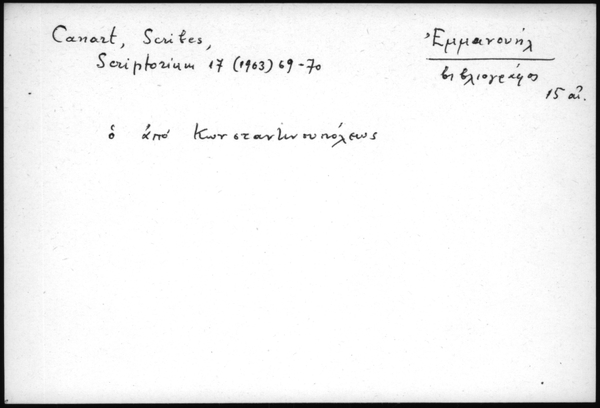 Canart, Scribes,
Scriptorium 17 (1963) 69-70
Ἐμμανουήλ
βιβλιογράφος
15 αἰ.
ὁ ἀπό Κωνσταντινουπόλεως